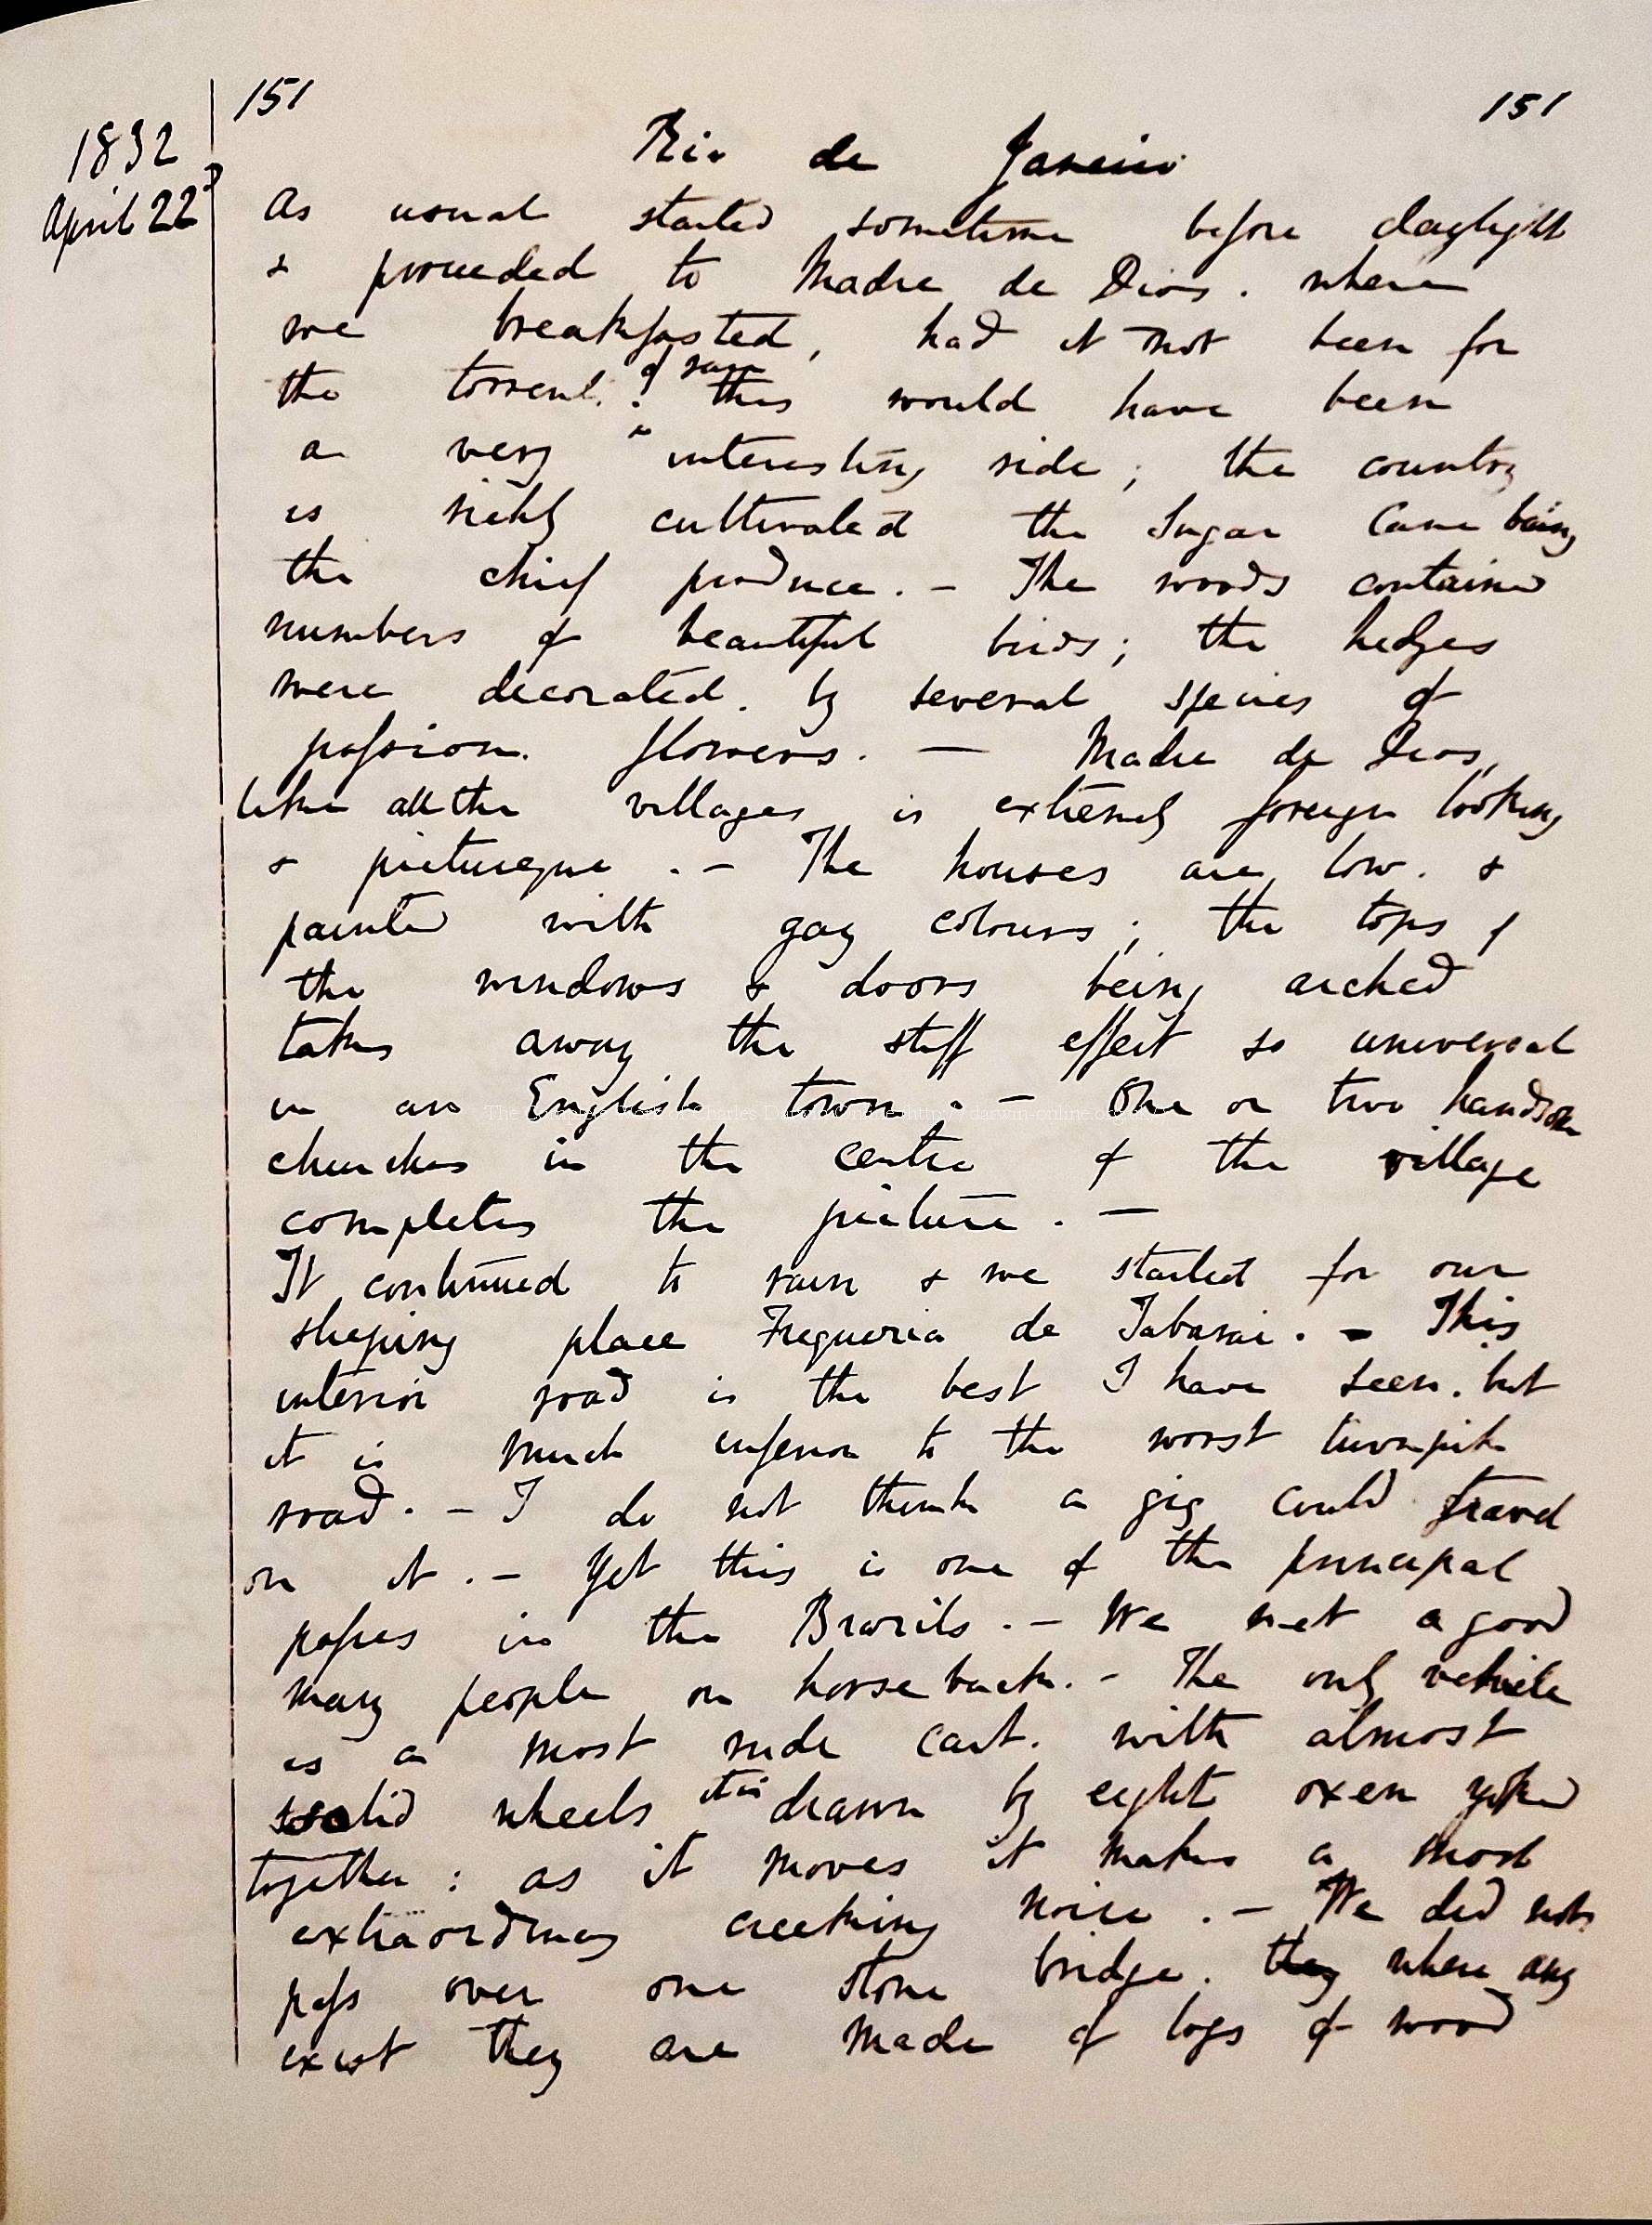 151 151
1832
April 22d
Rio de Janeiro
As usual started sometime before daylight
& proceeded to Madre de Dios. where
we breakfasted, had it not been for
the torrent of rain this would have been
a very interesting ride; the country
is richly cultivated the Sugar Cane being
the chief produce. — The woods contained
numbers of beautiful birds; the hedges
were decorated. by several species of
passion flowers. — Madre de Dios,
like all the villages is extremely foreign looking
& picturesque. — The houses are low. &
painted with gay colours; the tops of
the windows & doors being arched
takes away the stiff effect so universal
in an English town. — One or two handsome
churches in the centre of the village
completes the picture. —
It continued to rain & we started for our
sleeping place Fregueria de Tabarai. — This
interior road is the best I have seen. but
it is much inferior to the worst turnpike
road. — I do not think a gig could travel
on it. — Yet this is one of the principal
passes in the Brazils. — We met a good
many people on horseback. — The only vehicle
is a most rude cart. with almost
solid wheels it is drawn by eight oxen yoked
together: as it moves it makes a most
extraordinary creeking noise. — We did not
pass over one stone bridge. they where any
exist they are made of logs of wood